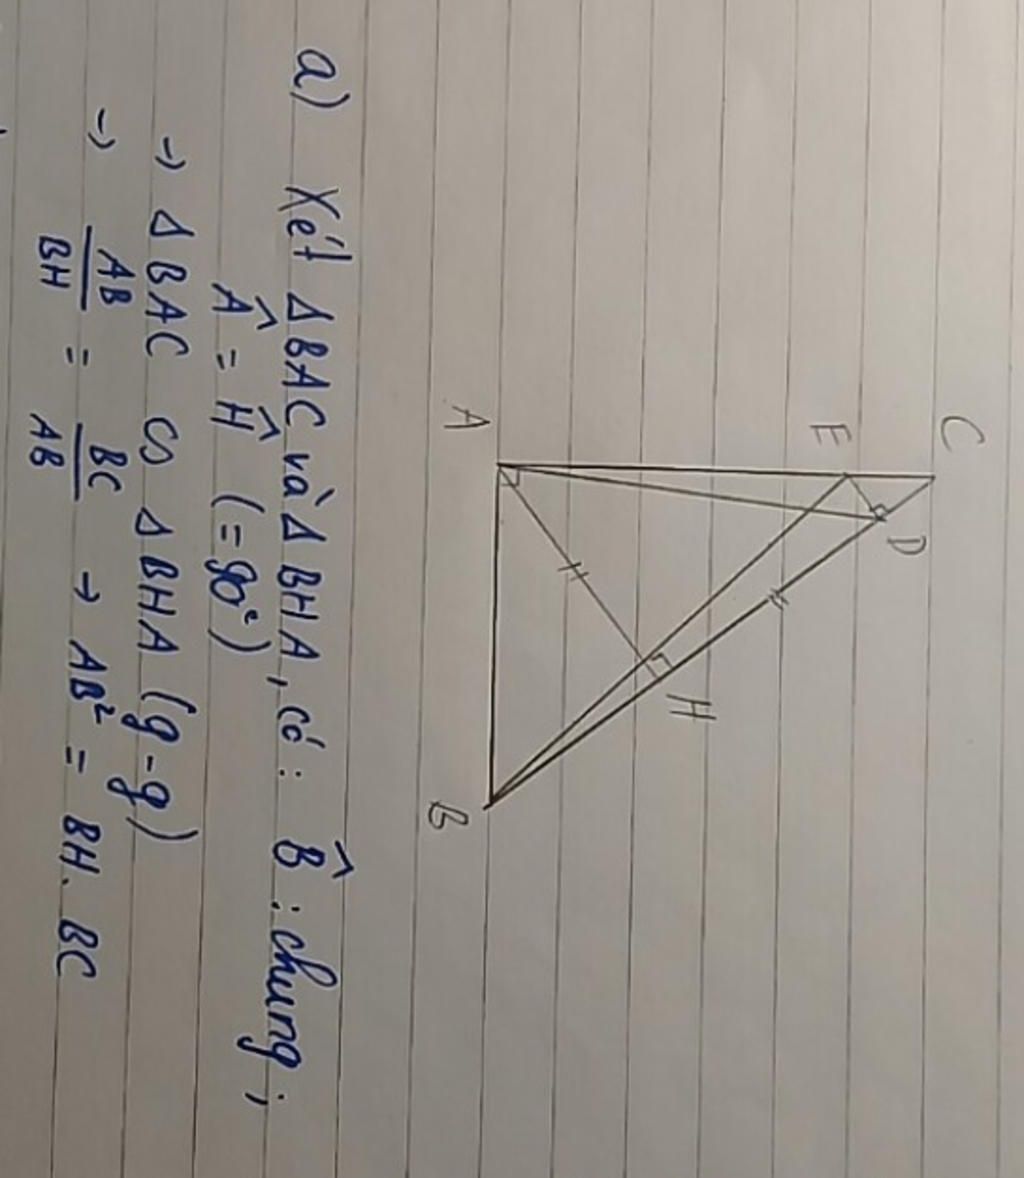 C
E
D
H
A
B
a) Xét Δ BAC và Δ BHA, có: B̂ : chung;
Â = Ĥ (= 90°)
→ Δ BAC ∽ Δ BHA (g-g)
→ AB/BH = BC/AB → AB² = BH. BC